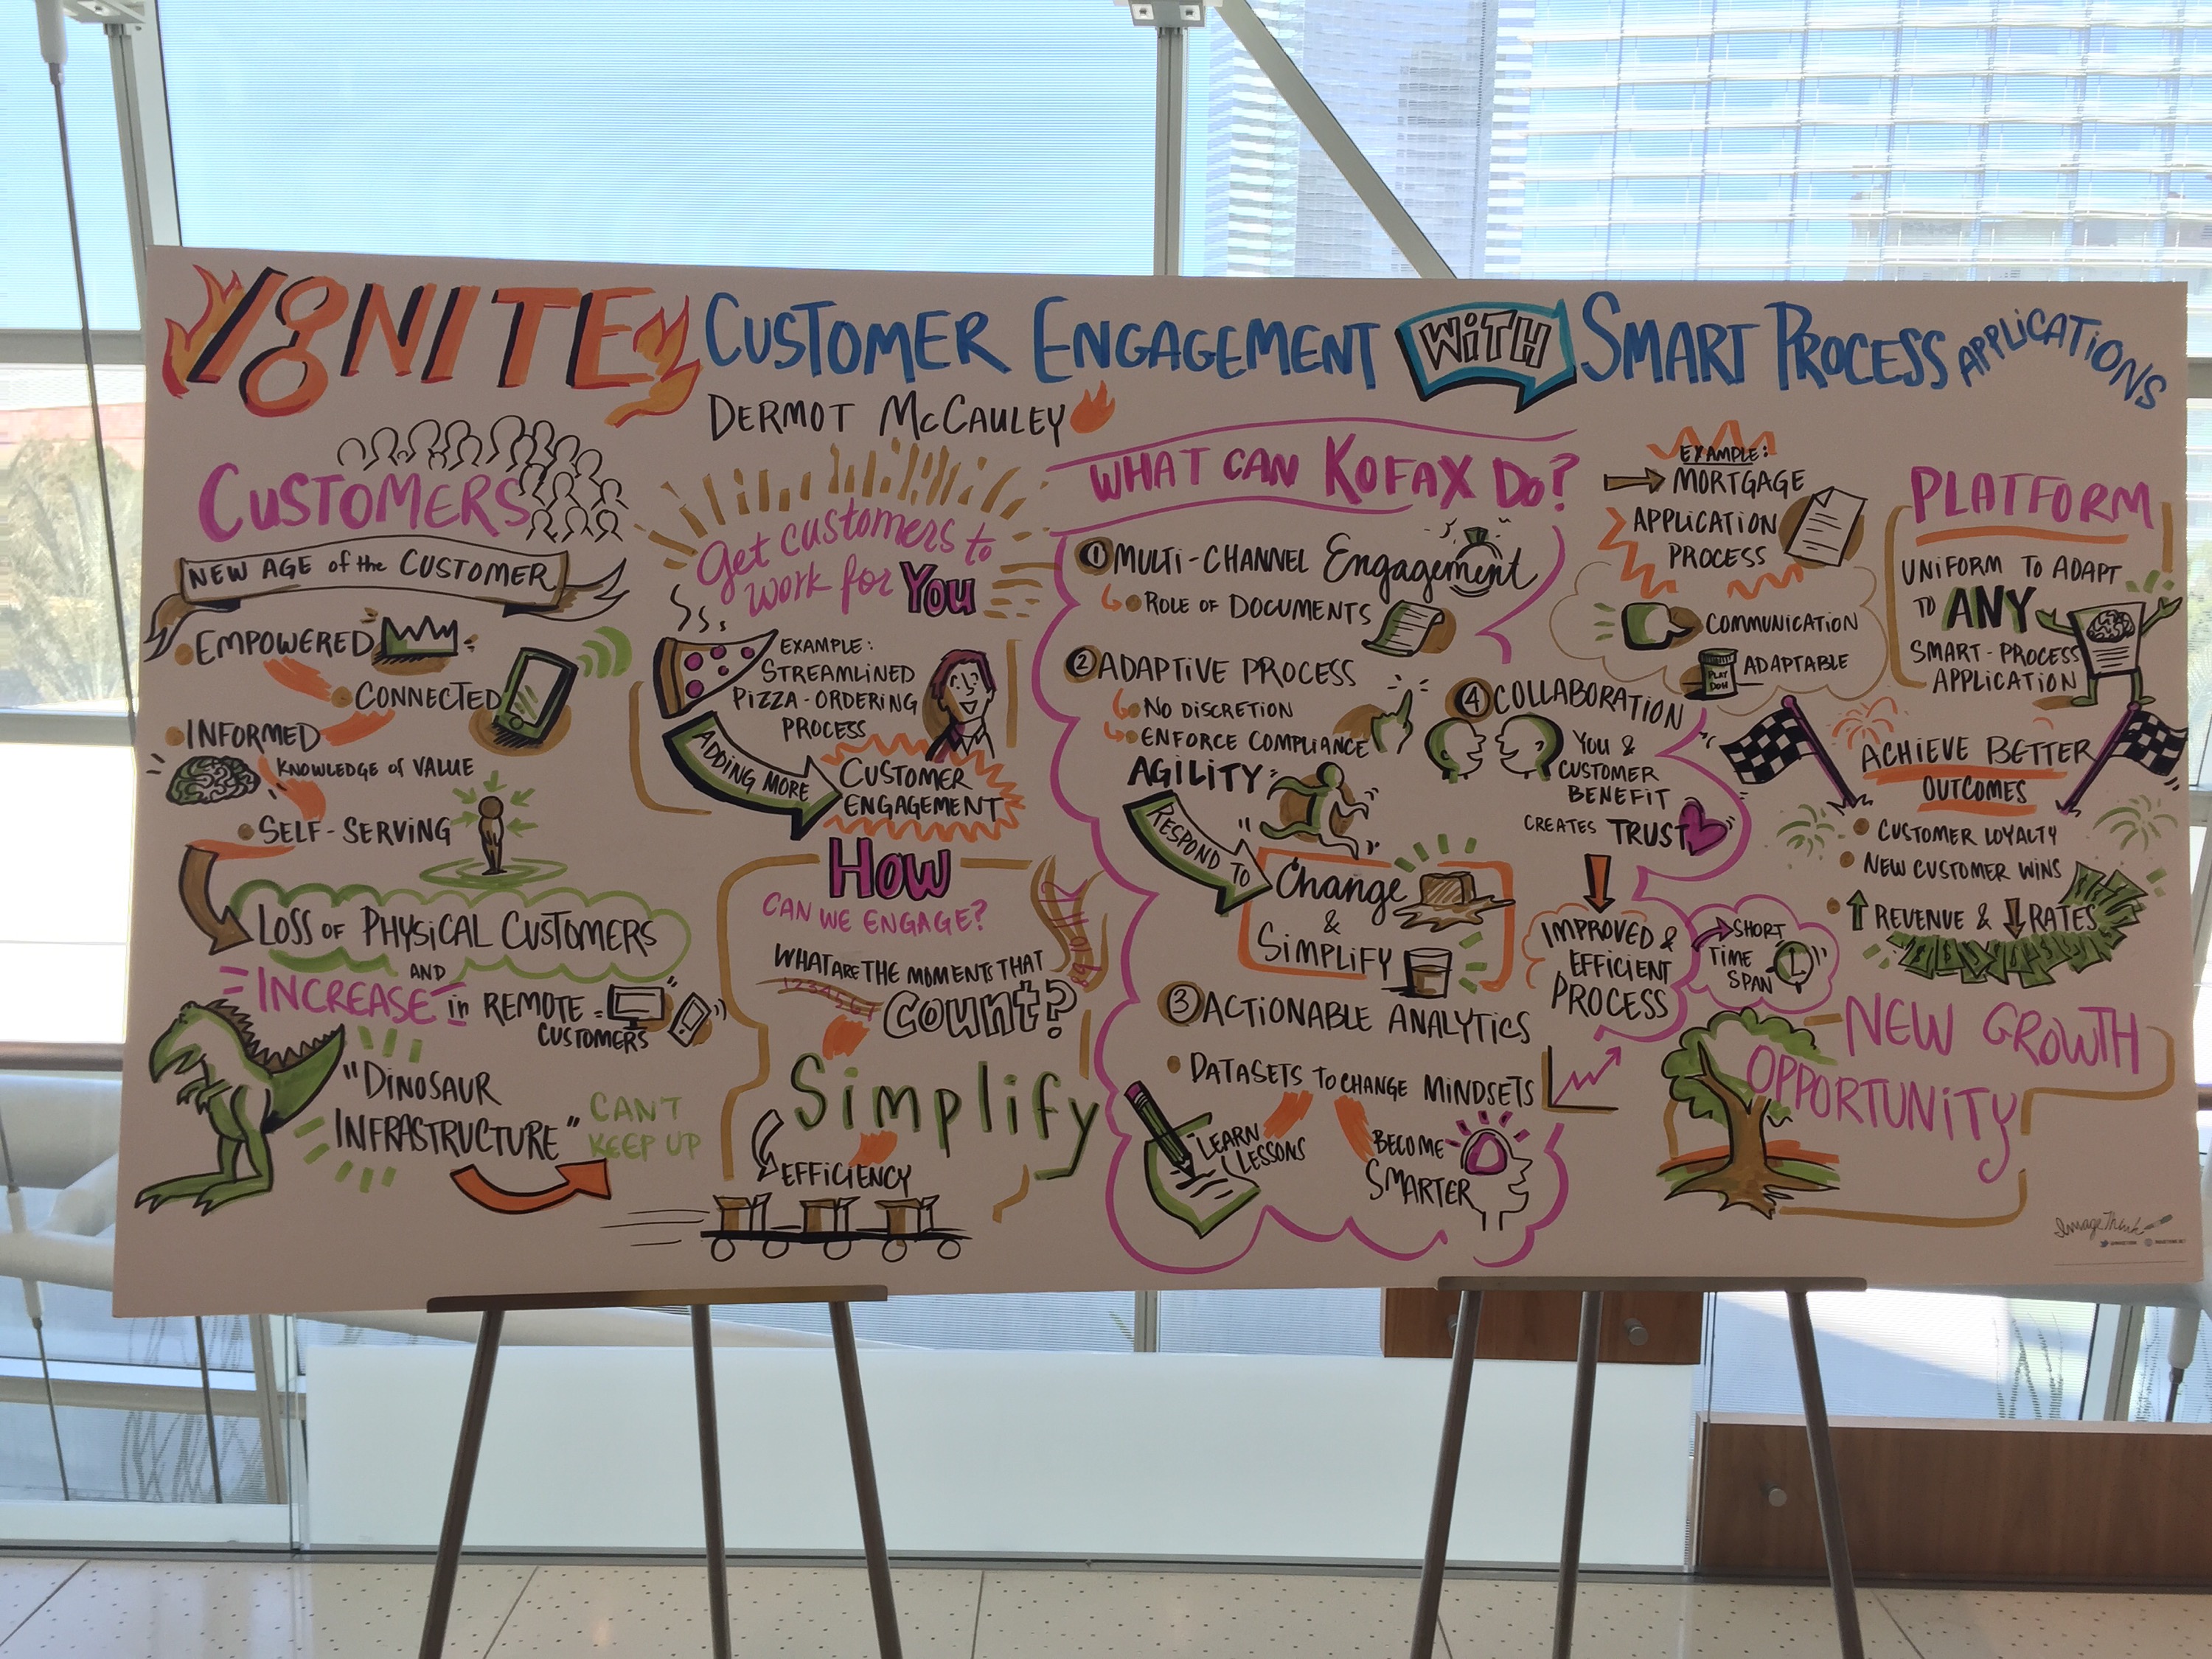 IGNITE CUSTOMER ENGAGEMENT WITH SMART PROCESS APPLICATIONS
DERMOT McCAULEY
CUSTOMERS
NEW AGE of the CUSTOMER
EMPOWERED
CONNECTED
INFORMED
KNOWLEDGE of VALUE
SELF-SERVING
LOSS OF PHYSICAL CUSTOMERS
AND
INCREASE in REMOTE
CUSTOMERS
"DINOSAUR
INFRASTRUCTURE"
CAN'T
KEEP UP
Get customers to
work for You
EXAMPLE:
STREAMLINED
PIZZA-ORDERING
PROCESS
ADDING MORE
CUSTOMER
ENGAGEMENT
HOW
CAN WE ENGAGE?
WHAT ARE THE MOMENTS THAT
COUNT?
Simplify
EFFICIENCY
WHAT CAN KOFAX DO?
1 MULTI-CHANNEL Engagement
ROLE OF DOCUMENTS
2 ADAPTIVE PROCESS
NO DISCRETION
ENFORCE COMPLIANCE
AGILITY
RESPOND TO
Change
&
SIMPLIFY
3 ACTIONABLE ANALYTICS
DATASETS TO CHANGE MINDSETS
LEARN
LESSONS
BECOME
SMARTER
4 COLLABORATION
YOU &
CUSTOMER
BENEFIT
CREATES TRUST
IMPROVED &
EFFICIENT
PROCESS
SHORT
TIME
SPAN
EXAMPLE:
MORTGAGE
APPLICATION
PROCESS
COMMUNICATION
ADAPTABLE
PLAY
DOH
PLATFORM
UNIFORM TO ADAPT
TO ANY
SMART-PROCESS
APPLICATION
ACHIEVE BETTER
OUTCOMES
CUSTOMER LOYALTY
NEW CUSTOMER WINS
REVENUE & RATES
NEW GROWTH
OPPORTUNITY
ImageThink